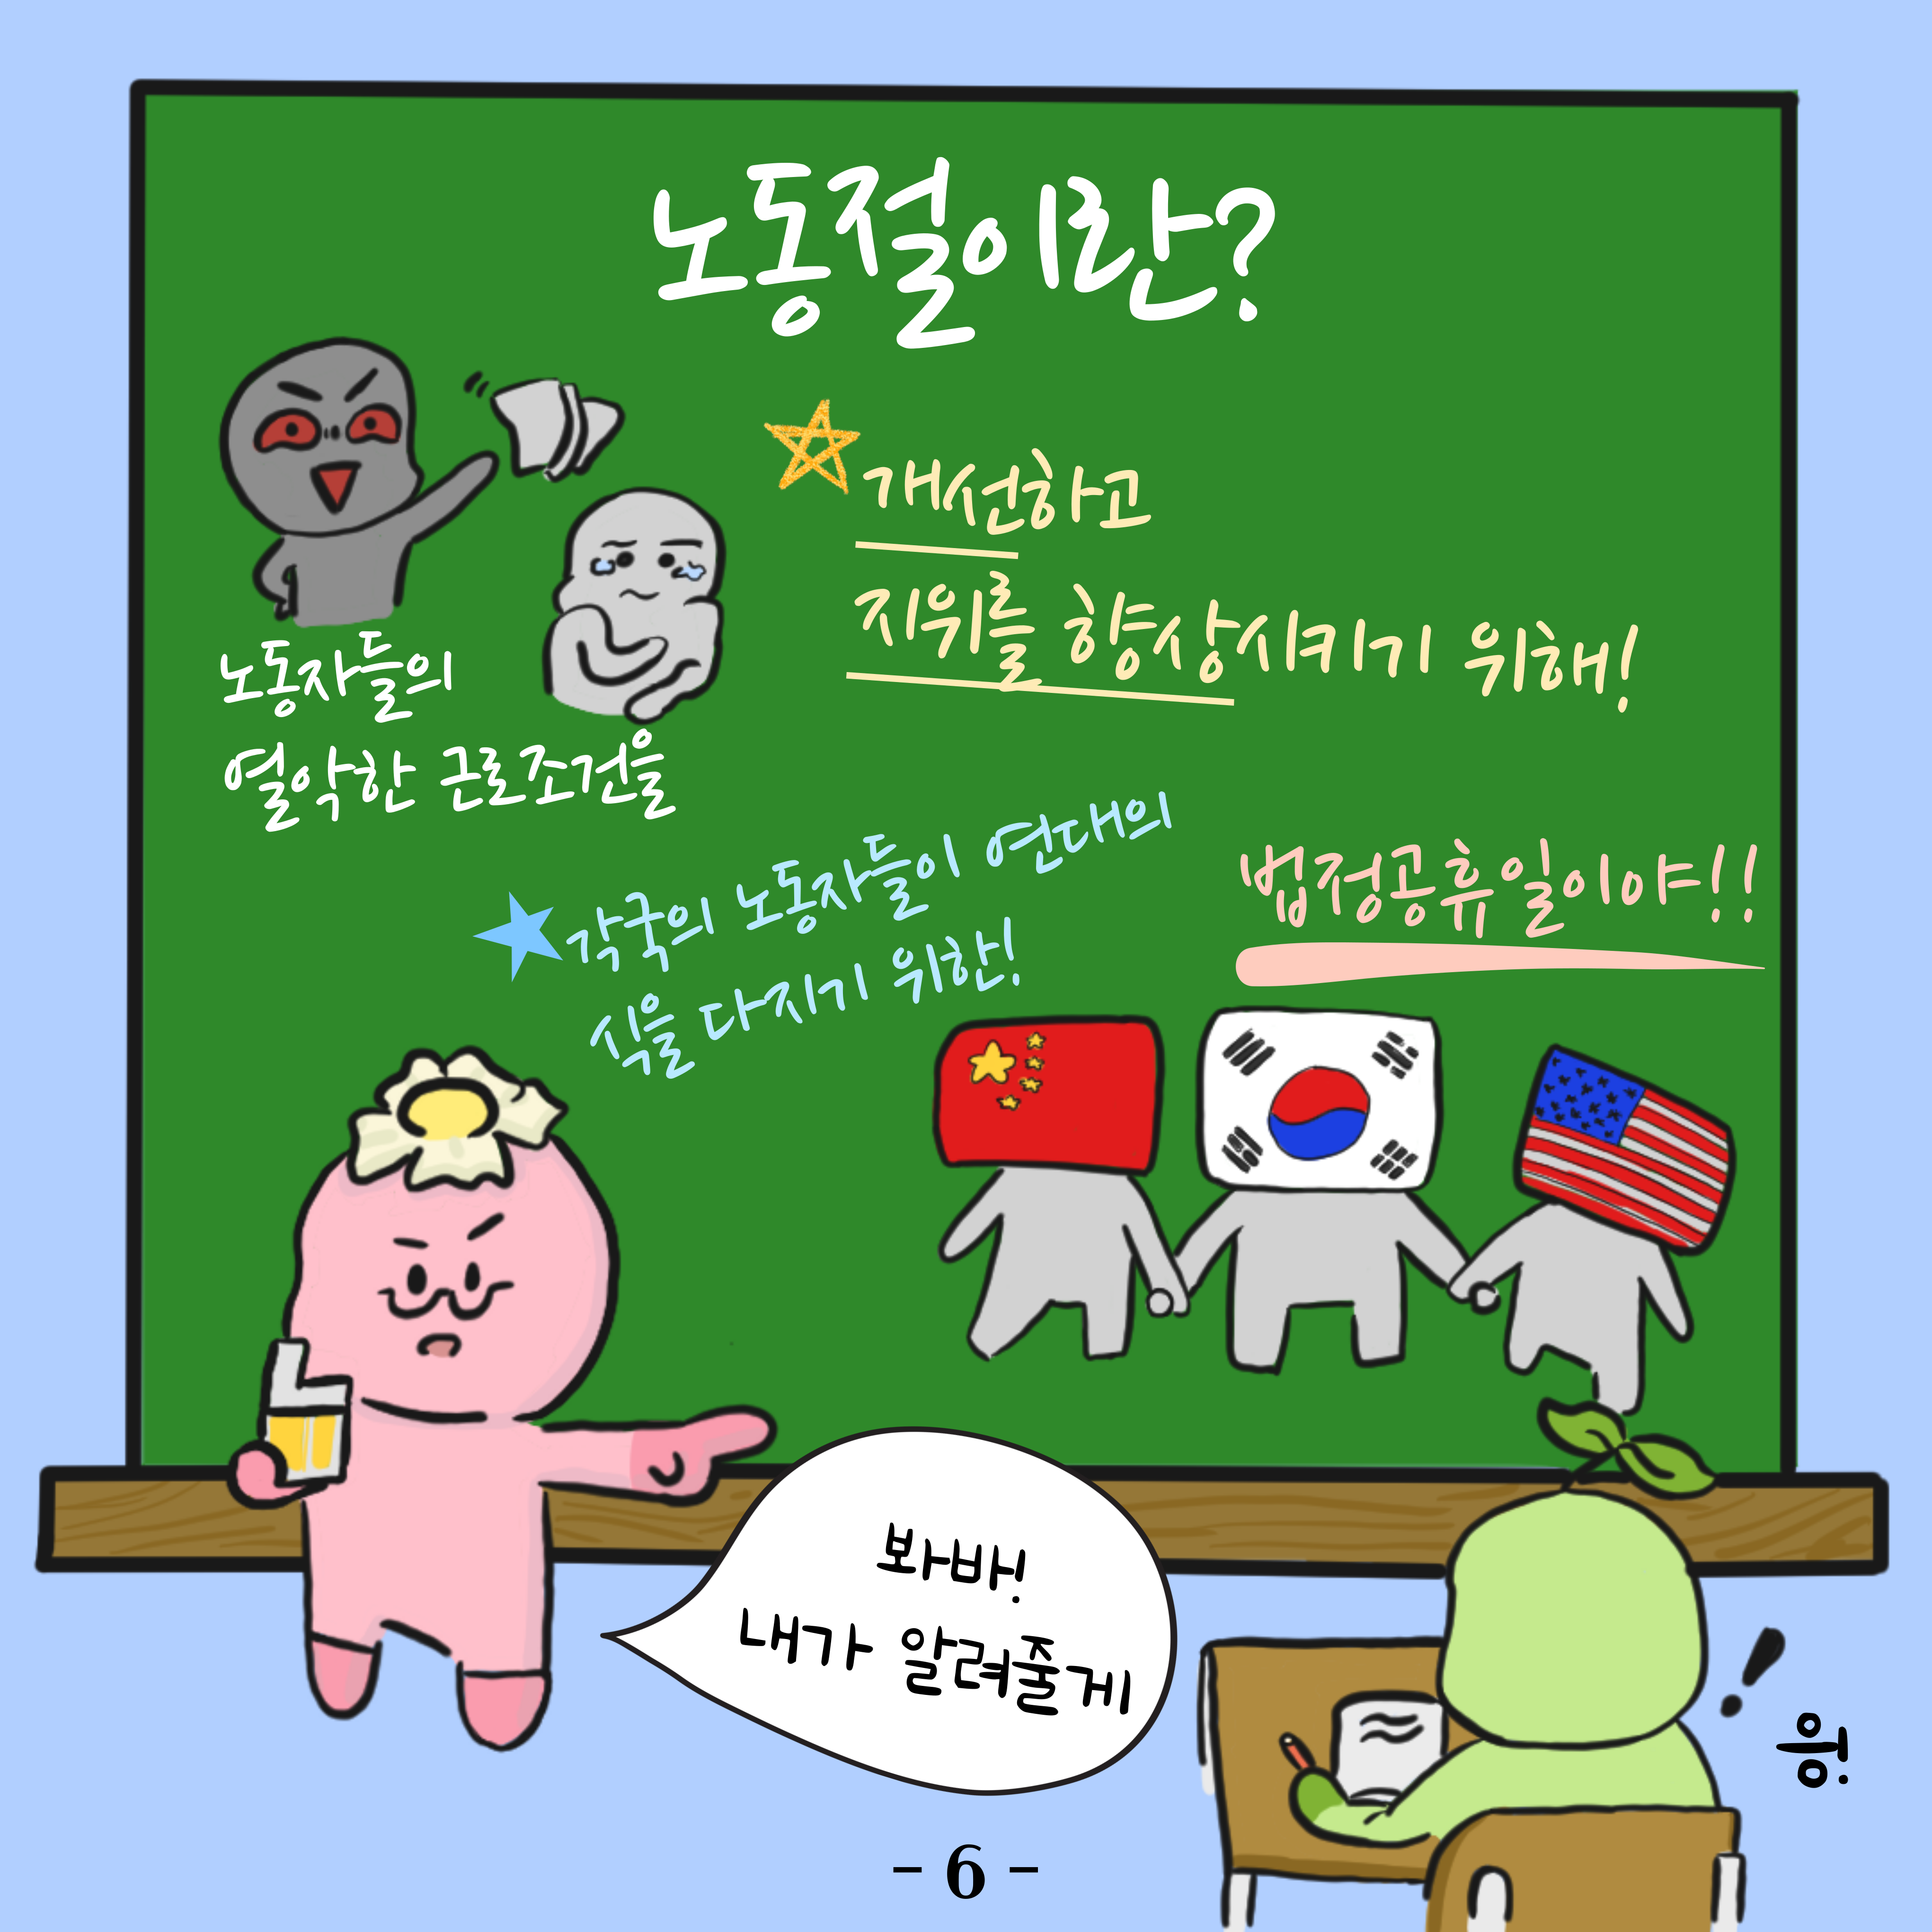 노동절이란?
노동자들의
열악한 근로조건을
개선하고
지위를 향상시키기 위해!
각국의 노동자들이 연대의
식을 다지기 위한!
법정공휴일이야!!
봐바!
내가 알려줄게
응!
- 6 -